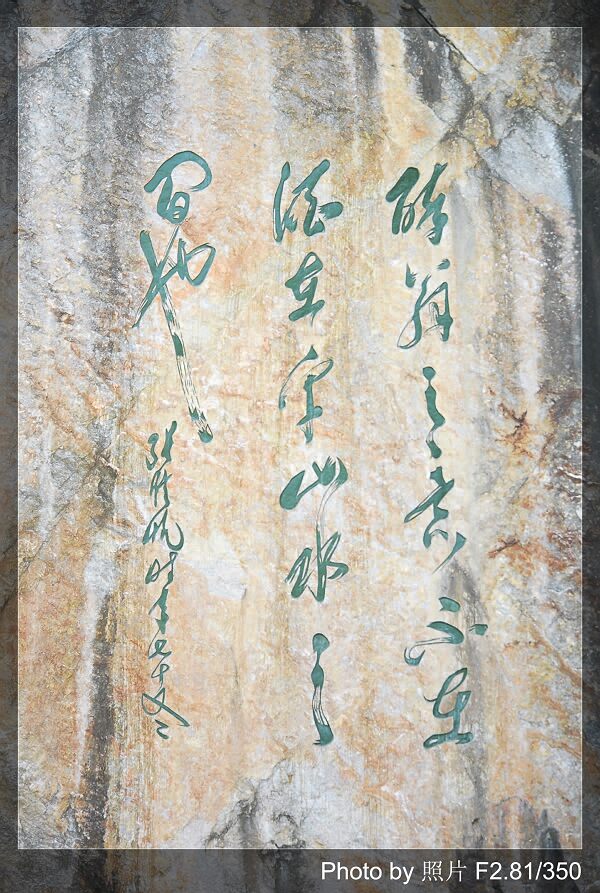 醉翁之意不在
酒在乎山水之
间也
时年七十又二
Photo by 照片 F2.81/350